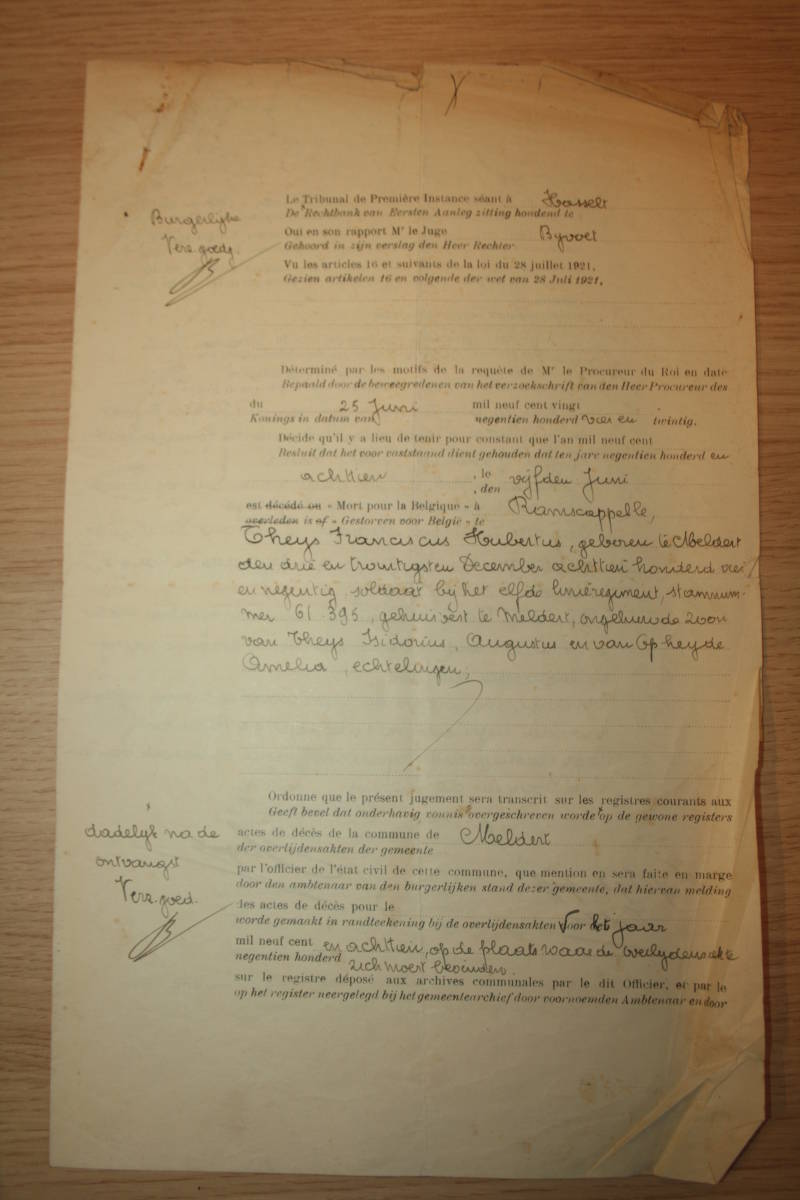 Le Tribunal de Première Instance séant à Hasselt
De Rechtbank van Eersten Aanleg zitting houdend te
Burgerlijke
Verz. goedg.
Oui en son rapport Mr le Juge Byvoet
Gehoord in zijn verslag den Heer Rechter
Vu les articles 16 et suivants de la loi du 28 juillet 1921,
Gezien artikelen 16 en volgende der wet van 28 Juli 1921,
Déterminé par les motifs de la requête de Mr le Procureur du Roi en date
Bepaald door de beweegredenen van het verzoekschrift van den Heer Procureur des
du 25 Juni mil neuf cent vingt
Konings in datum van negentien honderd vier en twintig.
Décide qu'il y a lieu de tenir pour constant que l'an mil neuf cent
Besluit dat het voor vaststaand dient gehouden dat ten jare negentien honderd en
achttien , le vijfden Juni
, den
est décédé ou « Mort pour la Belgique » à Ramscappelle,
overleden is of « Gestorven voor België » te
Theys Franciscus Hubertus, geboren te Meldert
den drie en twintigsten December achttien honderd vier
en negentig soldaat bij het elfde linieregiment, stamnum-
mer 61 395, gehuisvest te Meldert, ongehuwde zoon
van Theys Isidorius, Augustus en van Op heyde
Amelia, echtelingen;
Ordonne que le présent jugement sera transcrit sur les registres courants aux
Geeft bevel dat onderhavig vonnis overgeschreven worde op de gewone registers
dadelijk na de
ontvangst
Verz. goed.
actes de décès de la commune de Meldert
der overlijdensakten der gemeente
par l'officier de l'état civil de cette commune, que mention en sera faite en marge
door den ambtenaar van den burgerlijken stand dezer gemeente, dat hiervan melding
les actes de décès pour le
worde gemaakt in randteekening bij de overlijdensakten Voor het jaar
mil neuf cent en achttien, op de plaats waar de overlydensakte
negentien honderd zich moest bevinden.
sur le registre déposé aux archives communales par le dit Officier, et par le
op het register neergelegd bij het gemeentearchief door voornoemden Ambtenaar en door